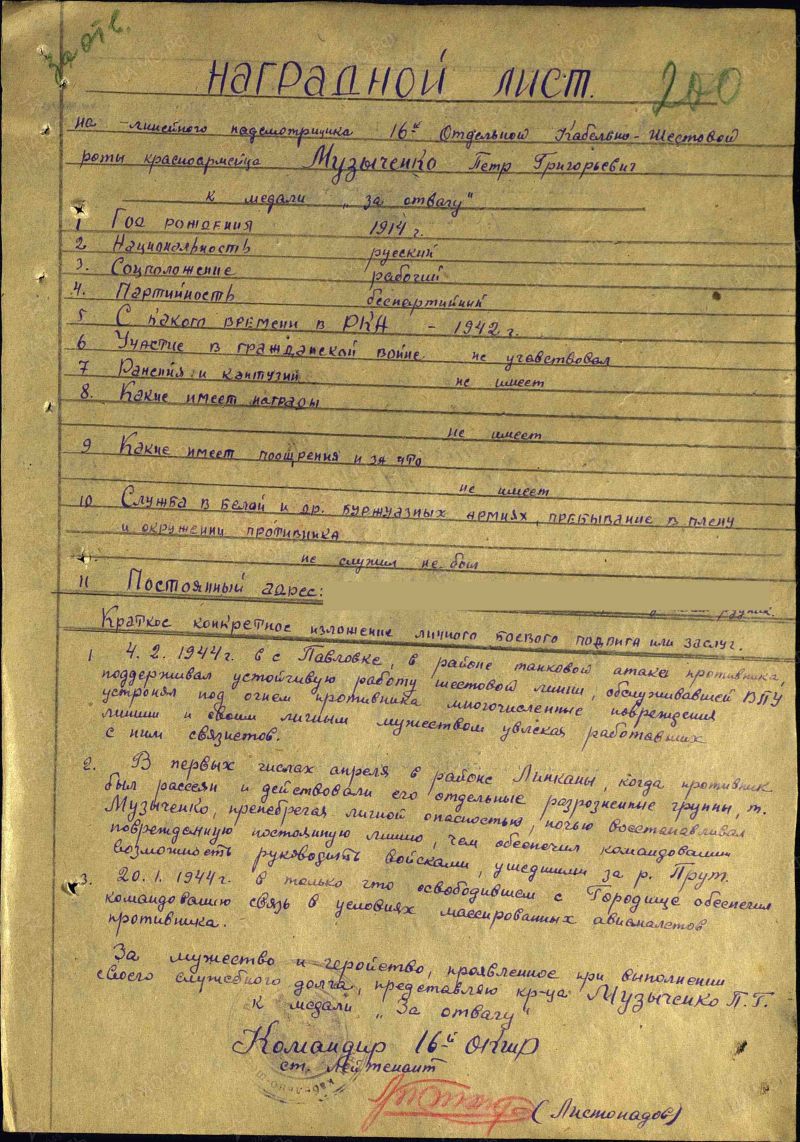 за отв.
200
НАГРАДНОЙ ЛИСТ.
на линейного надсмотрщика 16й Отдельной Кабельно-Шестовой
роты красноармейца Музыченко Петр Григорьевич
к медали „за отвагу"
1 Год рождения 1914 г.
2 Национальность русский
3. Соцположение рабочий
4. Партийность беспартийный
5 С какого времени в РКА - 1942 г.
6 Участие в гражданской войне не учавствовал
7 Ранения и кантузии не имеет
8. Какие имеет награды
не имеет
9 Какие имеет поощрения и за что
не имеет
10 Служба в белой и др. буржуазных армиях, пребывание в плену
и окружении противника
не служил не был
11 Постоянный адрес:
рудник.
Краткое конкретное изложение личного боевого подвига или заслуг.
1 4. 2. 1944 г. в с Павловке, в районе танковой атака противника,
поддерживал устойчивую работу шестовой линии, обслуживавшей ВПУ
устронял под огнем противника многочисленные повреждения
линии и своим личным мужеством увлекая работавших
с ним связистов.
2. В первых числах апреля в районе Линканы, когда противник
был рассеян и действовали его отдельные разрозненные группы, т.
Музыченко, пренебрегая личной опасностью, ночью восстанавливал
поврежденную постоянную линию, чем обеспечил командованию
возможность руководить войсками, ушедшими за р. Прут.
3. 20. 1. 1944 г. в только что освободившем с Городище обеспечил
командованию связь в условиях массированных авианалетов
противника.
За мужество и геройство, проявленное при выполнении
своего служебного долга, представляю кр-ца Музыченко П. Г.
к медали „За отвагу"
Командир 16й ОКШР
ст. Лейтенант
(Листопадов)